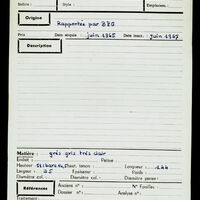 Indice : Style : Emplacem. :
Origine Rapportée par BEG
Prix Date acquis. : juin 1965 Date inscr. : juin 1967
Description
Matière : grès gris très clair
Enduit : Patine :
Hauteur Tenon : Longueur : 144
Largeur : 25 Epaisseur : Poids :
Diamètre col. : Diamètre col. : Diamètre panse :
Références Anciens n° : N° Fouilles :
Dossier n° : Analyse n° :
Traitement :